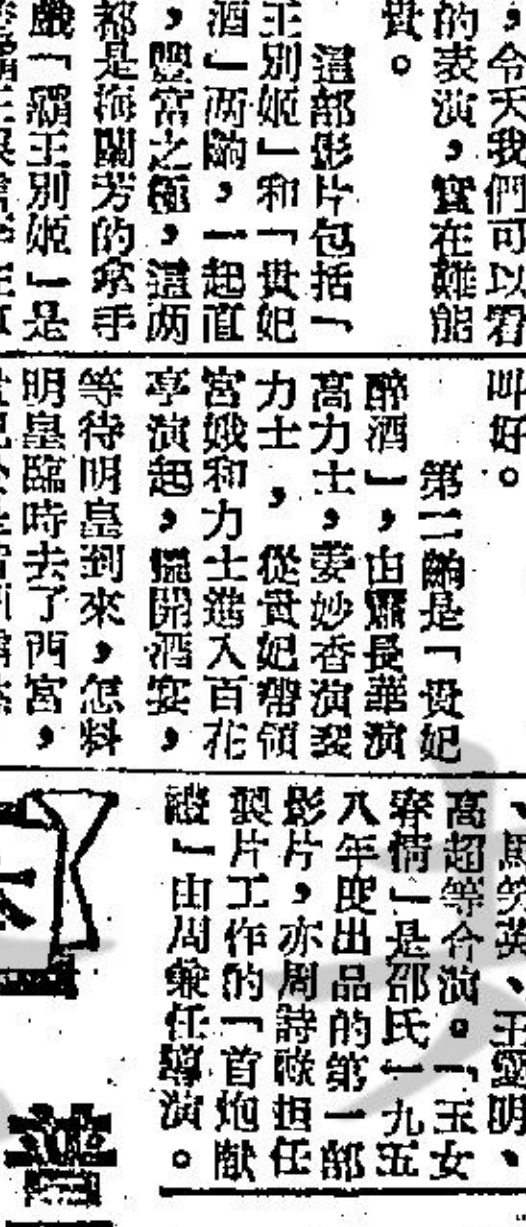 ，令天我們可以看
的表演，實在難能
貴。
這部影片包括「
王別姬」和「貴妃
酒」两齣，一起直
，豐富之極，這两
都是梅蘭芳的拿手
戲「霸王別姬」是
叫好。
第二齣是「貴妃
醉酒」，由蕭長華演
高力士，姜妙香演裴
力士，從貴妃帶領
宮娥和力士進入百花
亭演起，擺開酒宴，
等待明皇到來，怎料
明皇臨時去了西宮，
、馬笑英、王靈明、
高超等合演。「玉女
春情」是邵氏一九五
八年度出品的第一部
影片，亦周詩祿担任
製片工作的「首炮献
禮」由周兼任導演。